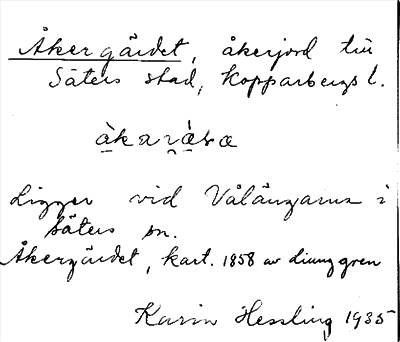 Åkergärdet, åkerjord till
Säters stad, Kopparbergs l.
Ligger vid Vålängarna i
Säters sn.
Åkergärdet, kart. 1858 av Ljunggren
Karin Hessling 1935